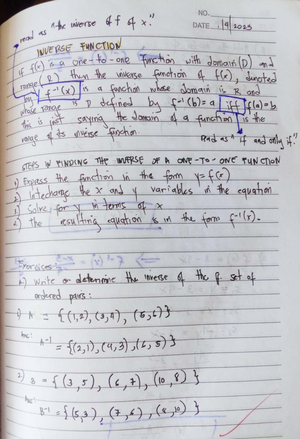 NO.
DATE 1/9/2023
read as "the inverse of f of x."
INVERSE FUNCTION
If f(x) is a one-to-one function with domain (D) and
range (R) then the inverse function of f(x), denoted
by f⁻¹(x) is a function whose domain is R and
whose range is D defined by f⁻¹(b)=a iff f(a)=b
this is just saying the domain of a function is the
range of its inverse function
Read as "if and only if"
STEPS IN FINDING THE INVERSE OF A ONE-TO-ONE FUNCTION
1) Express the function in the form y=f(x)
2) Interchange the x and y variables in the equation
3) Solve for y in terms of x
4) The resulting equation is in the form f⁻¹(x).
Exercises:
A) Write or determine the inverse of the ff. set of
ordered pairs:
1) A = {(1,2), (3,4), (5,6)}
Ans:
A⁻¹ = {(2,1), (4,3), (6,5)}
2) B = {(3,5), (6,7), (10,8)}
Ans:
B⁻¹ = {(5,3), (7,6), (8,10)}